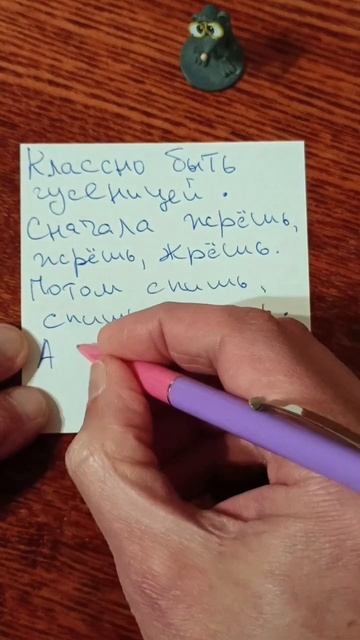 Классно быть
гусеницей.
Сначала жрёшь,
жрёшь, жрёшь.
Потом спишь,
А